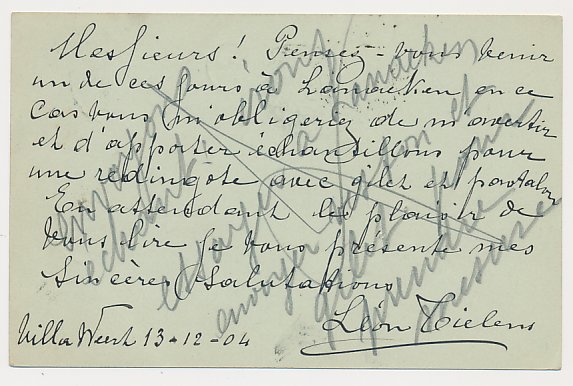 Messieurs! Pensez-vous venir
un de ces jours à Lanaeken en ce
cas vous m'obligeriez de m'avertir
et d'apporter échantillons pour
une redingote avec gilet et pantalon
En attendant le plaisir de
vous lire je vous présente mes
sincères salutations
Léon Tielens
Villa Weert 13-12-04
envoyer
prendre
mesure